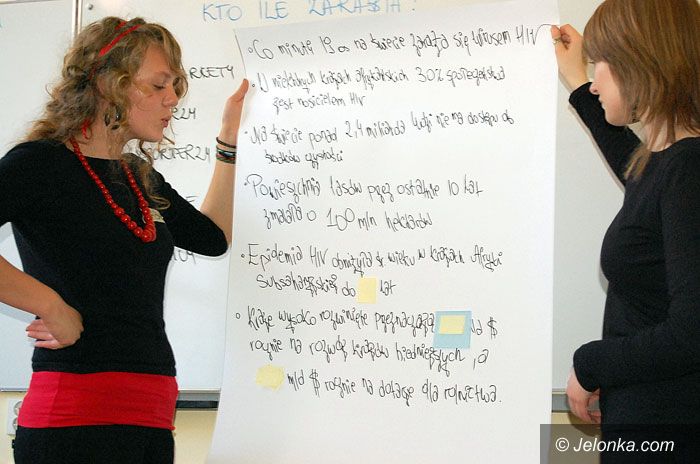 KTO ILE ZARABIA?
• Co minutę 19 os na świecie zaraża się wirusem HIV
• W niektórych krajach afrykańskich 30% społeczeństwa
jest nosicielem HIV
• Na świecie ponad 2,4 miliarda ludzi nie ma dostępu do
środków czystości
• Powierzchnia lasów przez ostatnie 10 lat
zmalała o 100 mln hektarów
• Epidemia HIV obniżyła śr. wieku w krajach Afryki
Subsaharyjskiej do lat
• Kraje wysoko rozwinięte przeznaczają $
rocznie na rozwój krajów biedniejszych, a
mld $ rocznie na dotacje dla rolnictwa.
© Jelonka.com